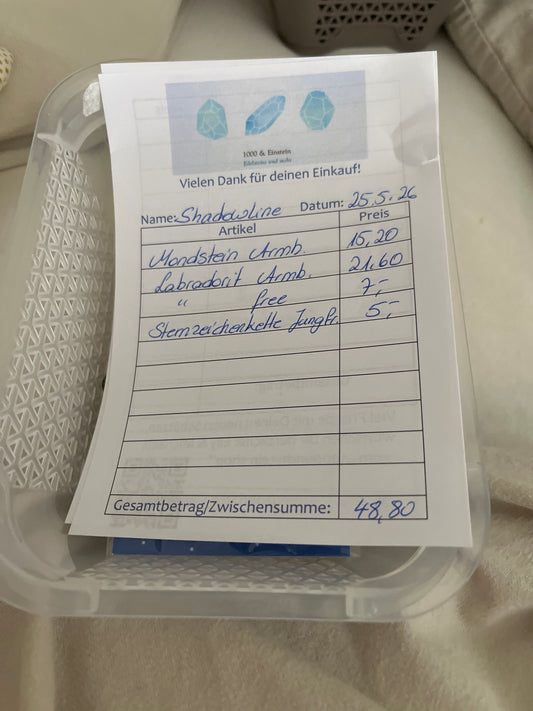 1000 & Einstein
Edelsteine und mehr
Vielen Dank für deinen Einkauf!
Name: Shadowline Datum: 25.5.26
Artikel Preis
Mondstein Armb. 15,20
Labradorit Armb. 21,60
" free 7,-
Sternzeichenkette Jungfr. 5,-
Gesamtbetrag/Zwischensumme: 48,80